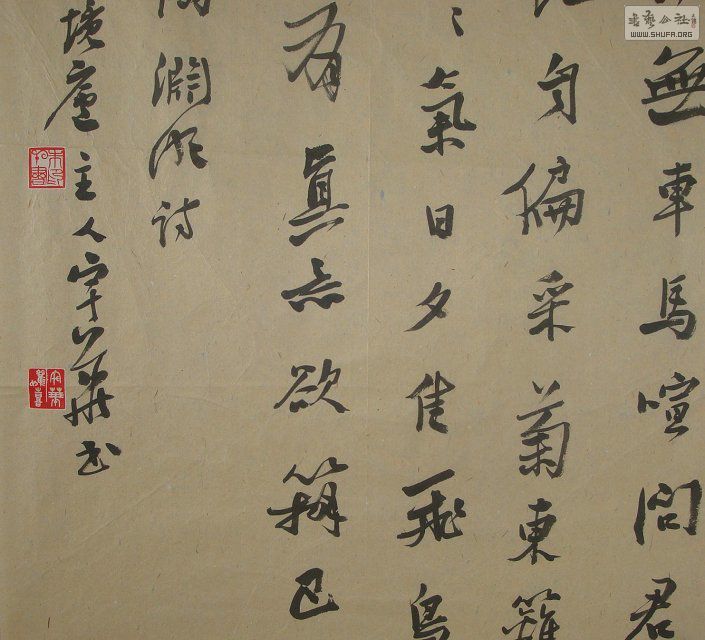 無車馬喧問君
自偏采菊東籬
〻氣日夕佳飛鳥
有眞意欲辯已
淵明詩
境廬主人 華书
書藝公社
WWW.SHUFA.ORG